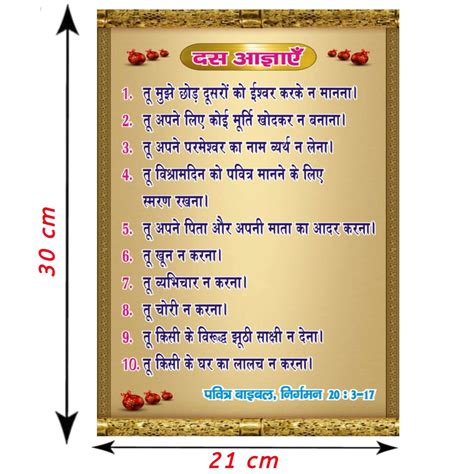 दस आज्ञाएँ
1. तू मुझे छोड़ दूसरों को ईश्वर करके न मानना।
2. तू अपने लिए कोई मूर्ति खोदकर न बनाना।
3. तू अपने परमेश्वर का नाम व्यर्थ न लेना।
4. तू विश्रामदिन को पवित्र मानने के लिए
स्मरण रखना।
5. तू अपने पिता और अपनी माता का आदर करना।
6. तू खून न करना।
7. तू व्यभिचार न करना।
8. तू चोरी न करना।
9. तू किसी के विरूद्ध झूठी साक्षी न देना।
10. तू किसी के घर का लालच न करना।
पवित्र बाइबल, निर्गमन 20 : 3-17
30 cm
21 cm